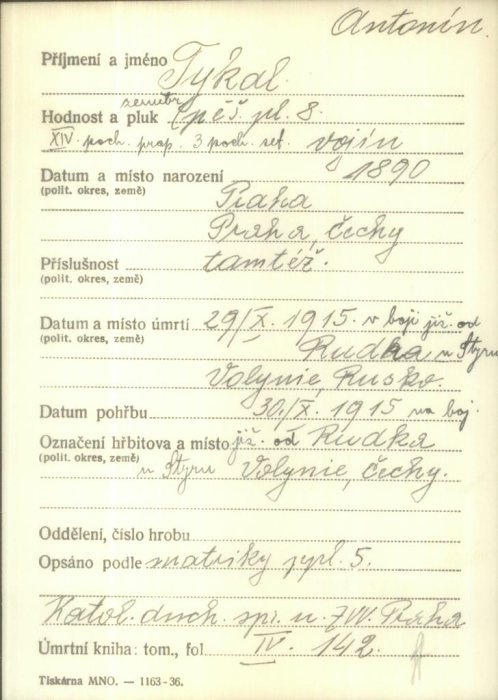 Antonín
Příjmení a jméno Týkal.
zeměbr.
Hodnost a pluk pěš. pl. 8.
XIV. poch. prap. 3 poch. set. vojín
Datum a místo narození 1890
(polit. okres, země) Praha
Praha, Čechy
Příslušnost tamtéž.
(polit. okres, země)
Datum a místo úmrtí 29/X. 1915. v boji již. od
(polit. okres, země) Rudka u Styru
Volynie, Rusko.
Datum pohřbu 30./X. 1915 na boj.
Označení hřbitova a místo již. od Rudka
(polit. okres, země) u Styru Volynie, Čechy.
Oddělení, číslo hrobu
Opsáno podle matriky ppl. 5.
Katol. duch. spr. u ZVV. Praha
Úmrtní kniha: tom., fol. IV. 142.
Tiskárna MNO. — 1163-36.